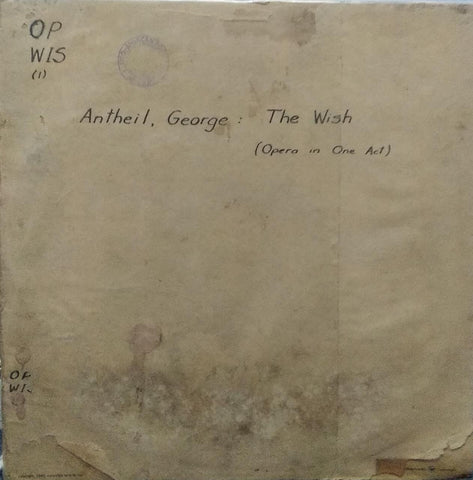 OP
WIS
(1)
Antheil, George: The Wish
(Opera in One Act)
OP
WI